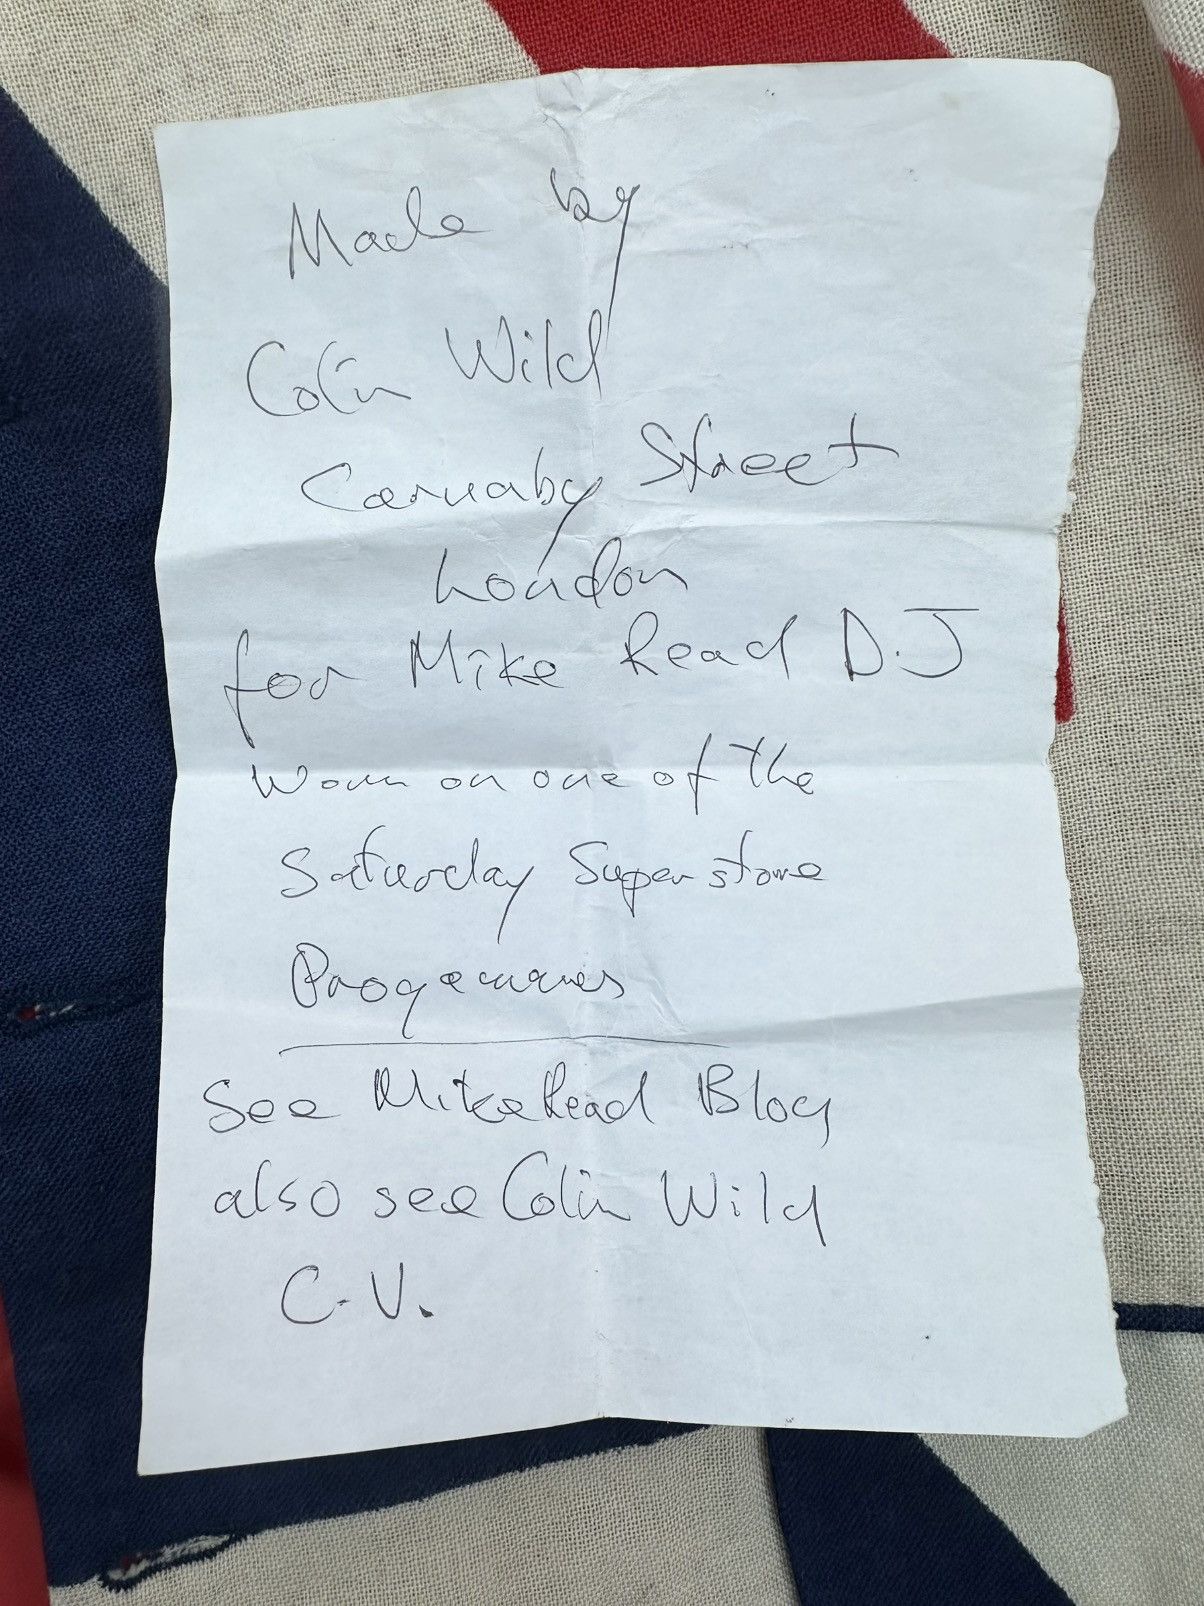 Made by
Colin Wild
Carnaby Street
London
for Mike Read D.J
Worn on one of the
Saturday Superstore
Programmes
See Mike Read Blog
also see Colin Wild
C.V.